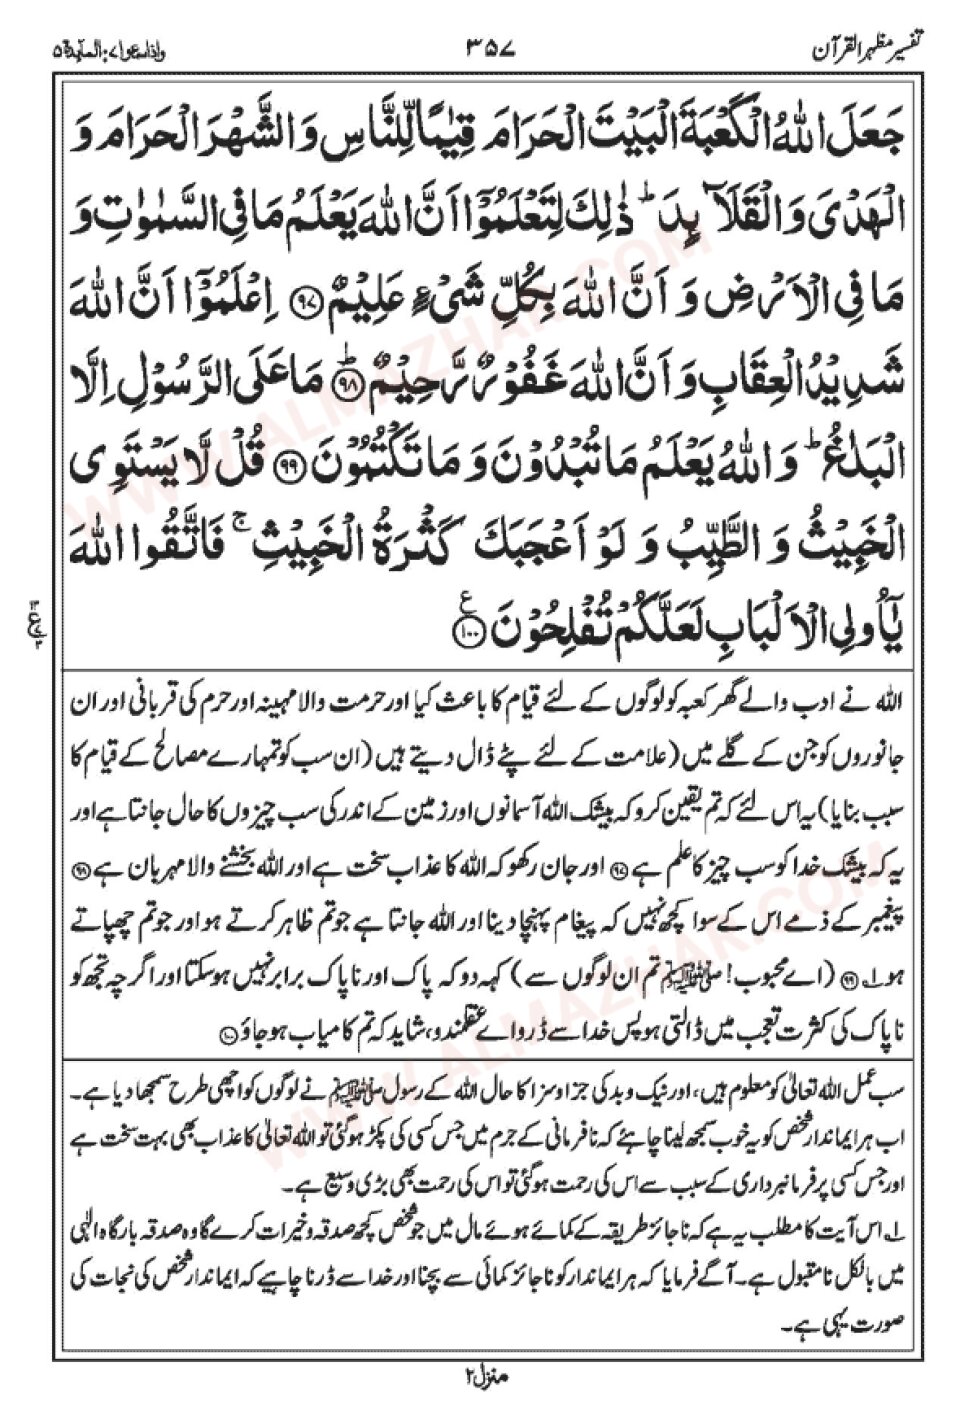 تفسیر مظہر القرآن
۳۵۷
واذاسمعوا ۷: المآیدۃ ۵
جَعَلَ اللّٰهُ الْكَعْبَةَ الْبَيْتَ الْحَرَامَ قِيٰمًا لِّلنَّاسِ وَ الشَّهْرَ الْحَرَامَ وَ
الْهَدْيَ وَ الْقَلَآىِٕدَ ؕ ذٰلِكَ لِتَعْلَمُوْۤا اَنَّ اللّٰهَ يَعْلَمُ مَا فِي السَّمٰوٰتِ وَ
مَا فِي الْاَرْضِ وَ اَنَّ اللّٰهَ بِكُلِّ شَيْءٍ عَلِيْمٌ ۹۷ اِعْلَمُوْۤا اَنَّ اللّٰهَ
شَدِيْدُ الْعِقَابِ وَ اَنَّ اللّٰهَ غَفُوْرٌ رَّحِيْمٌ ؕ ۹۸ مَا عَلَى الرَّسُوْلِ اِلَّا
الْبَلٰغُ ؕ وَ اللّٰهُ يَعْلَمُ مَا تُبْدُوْنَ وَ مَا تَكْتُمُوْنَ ۹۹ قُلْ لَّا يَسْتَوِي
الْخَبِيْثُ وَ الطَّيِّبُ وَ لَوْ اَعْجَبَكَ كَثْرَةُ الْخَبِيْثِ ۚ فَاتَّقُوا اللّٰهَ
يٰۤاُولِي الْاَلْبَابِ لَعَلَّكُمْ تُفْلِحُوْنَ ۱۰۰ ع
اللہ نے ادب والے گھر کعبہ کو لوگوں کے لئے قیام کا باعث کیا اور حرمت والا مہینہ اور حرم کی قربانی اور ان
جانوروں کو جن کے گلے میں (علامت کے لئے پٹے ڈال دیتے ہیں (ان سب کو تمہارے مصالح کے قیام کا
سبب بنایا) یہ اس لئے کہ تم یقین کرو کہ بیشک اللہ آسمانوں اور زمین کے اندر کی سب چیزوں کا حال جانتا ہے اور
یہ کہ بیشک خدا کو سب چیز کا علم ہے ۹۷ اور جان رکھو کہ اللہ کا عذاب سخت ہے اور اللہ بخشنے والا مہربان ہے ۹۸
پیغمبر کے ذمے اس کے سوا کچھ نہیں کہ پیغام پہنچا دینا اور اللہ جانتا ہے جو تم ظاہر کرتے ہو اور جو تم چھپاتے
ہو ۱؎ ۹۹ (اے محبوب! ﷺ تم ان لوگوں سے) کہہ دو کہ پاک اور ناپاک برابر نہیں ہو سکتا اور اگرچہ تجھ کو
ناپاک کی کثرت تعجب میں ڈالتی ہو پس خدا سے ڈرو اے عقلمندو، شاید کہ تم کامیاب ہو جاؤ ۱۰۰
سب عمل اللہ تعالیٰ کو معلوم ہیں، اور نیک و بد کی جزا و سزا کا حال اللہ کے رسول ﷺ نے لوگوں کو اچھی طرح سمجھا دیا ہے۔
اب ہر ایماندار شخص کو یہ خوب سمجھ لینا چاہئے کہ نافرمانی کے جرم میں جس کسی کی پکڑ ہو گئی تو اللہ تعالیٰ کا عذاب بھی بہت سخت ہے
اور جس کسی پر فرمانبرداری کے سبب سے اس کی رحمت ہو گئی تو اس کی رحمت بھی بڑی وسیع ہے۔
۱؎ اس آیت کا مطلب یہ ہے کہ ناجائز طریقہ کے کمائے ہوئے مال میں جو شخص کچھ صدقہ و خیرات کرے گا وہ صدقہ بارگاہ الٰہی
میں بالکل نامقبول ہے۔ آگے فرمایا کہ ہر ایماندار کو ناجائز کمائی سے بچنا اور خدا سے ڈرنا چاہیے کہ ایماندار شخص کی نجات کی
صورت یہی ہے۔
منزل ۲
WWW.ALMAZHAR.COM
WWW.ALMAZHAR.COM